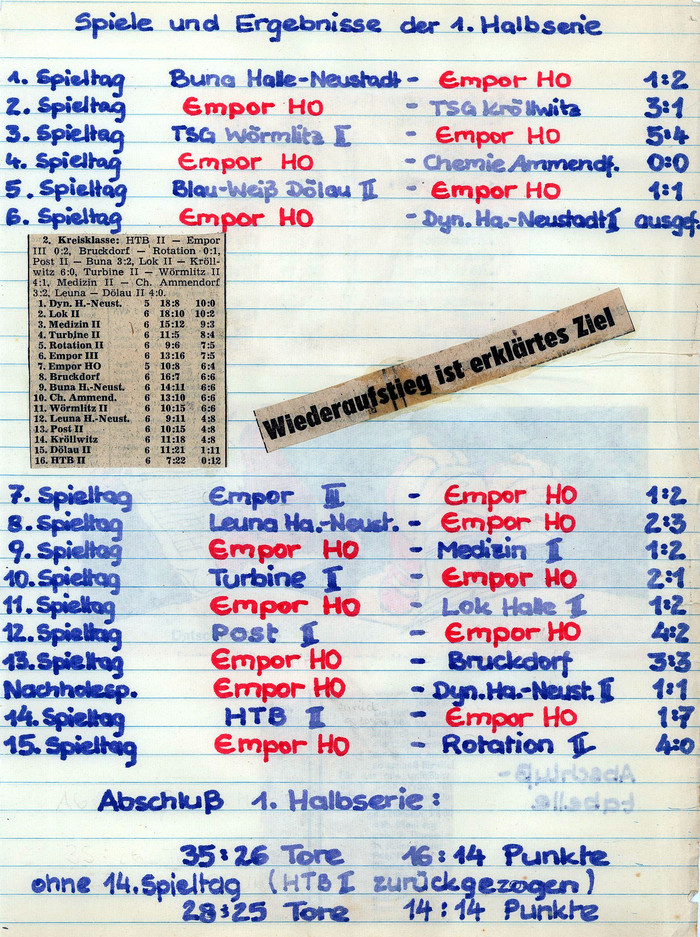 Spiele und Ergebnisse der 1. Halbserie
1. Spieltag Buna Halle-Neustadt - Empor HO 1:2
2. Spieltag Empor HO - TSG Kröllwitz 3:1
3. Spieltag TSG Wörmlitz II - Empor HO 5:4
4. Spieltag Empor HO - Chemie Ammendf. 0:0
5. Spieltag Blau-Weiß Dölau II - Empor HO 1:1
6. Spieltag Empor HO - Dyn. Ha.-Neustadt I ausgef.
2. Kreisklasse: HTB II — Empor
III 0:2, Bruckdorf — Rotation 0:1,
Post II — Buna 3:2, Lok II — Kröll-
witz 6:0, Turbine II — Wörmlitz II
4:1, Medizin II — Ch. Ammendorf
3:2, Leuna — Dölau II 4:0.
1. Dyn. H.-Neust. 5 18:8 10:0
2. Lok II 6 18:10 10:2
3. Medizin II 6 15:12 9:3
4. Turbine II 6 11:5 8:4
5. Rotation II 6 9:6 7:5
6. Empor III 6 13:16 7:5
7. Empor HO 5 10:8 6:4
8. Bruckdorf 6 16:7 6:6
9. Buna H.-Neust. 6 14:11 6:6
10. Ch. Ammend. 6 13:10 6:6
11. Wörmlitz II 6 10:15 6:6
12. Leuna H.-Neust. 6 9:11 4:8
13. Post II 6 10:15 4:8
14. Kröllwitz 6 11:18 4:8
15. Dölau II 6 11:21 1:11
16. HTB II 6 7:22 0:12
Wiederaufstieg ist erklärtes Ziel
7. Spieltag Empor III - Empor HO 1:2
8. Spieltag Leuna Ha.-Neust. - Empor HO 2:3
9. Spieltag Empor HO - Medizin II 1:2
10. Spieltag Turbine II - Empor HO 2:1
11. Spieltag Empor HO - Lok Halle II 1:2
12. Spieltag Post II - Empor HO 4:2
13. Spieltag Empor HO - Bruckdorf 3:3
Nachholesp. Empor HO - Dyn. Ha.-Neust. II 1:1
14. Spieltag HTB II - Empor HO 1:7
15. Spieltag Empor HO - Rotation II 4:0
Abschluß 1. Halbserie:
35:26 Tore 16:14 Punkte
ohne 14. Spieltag (HTB II zurückgezogen)
28:25 Tore 14:14 Punkte